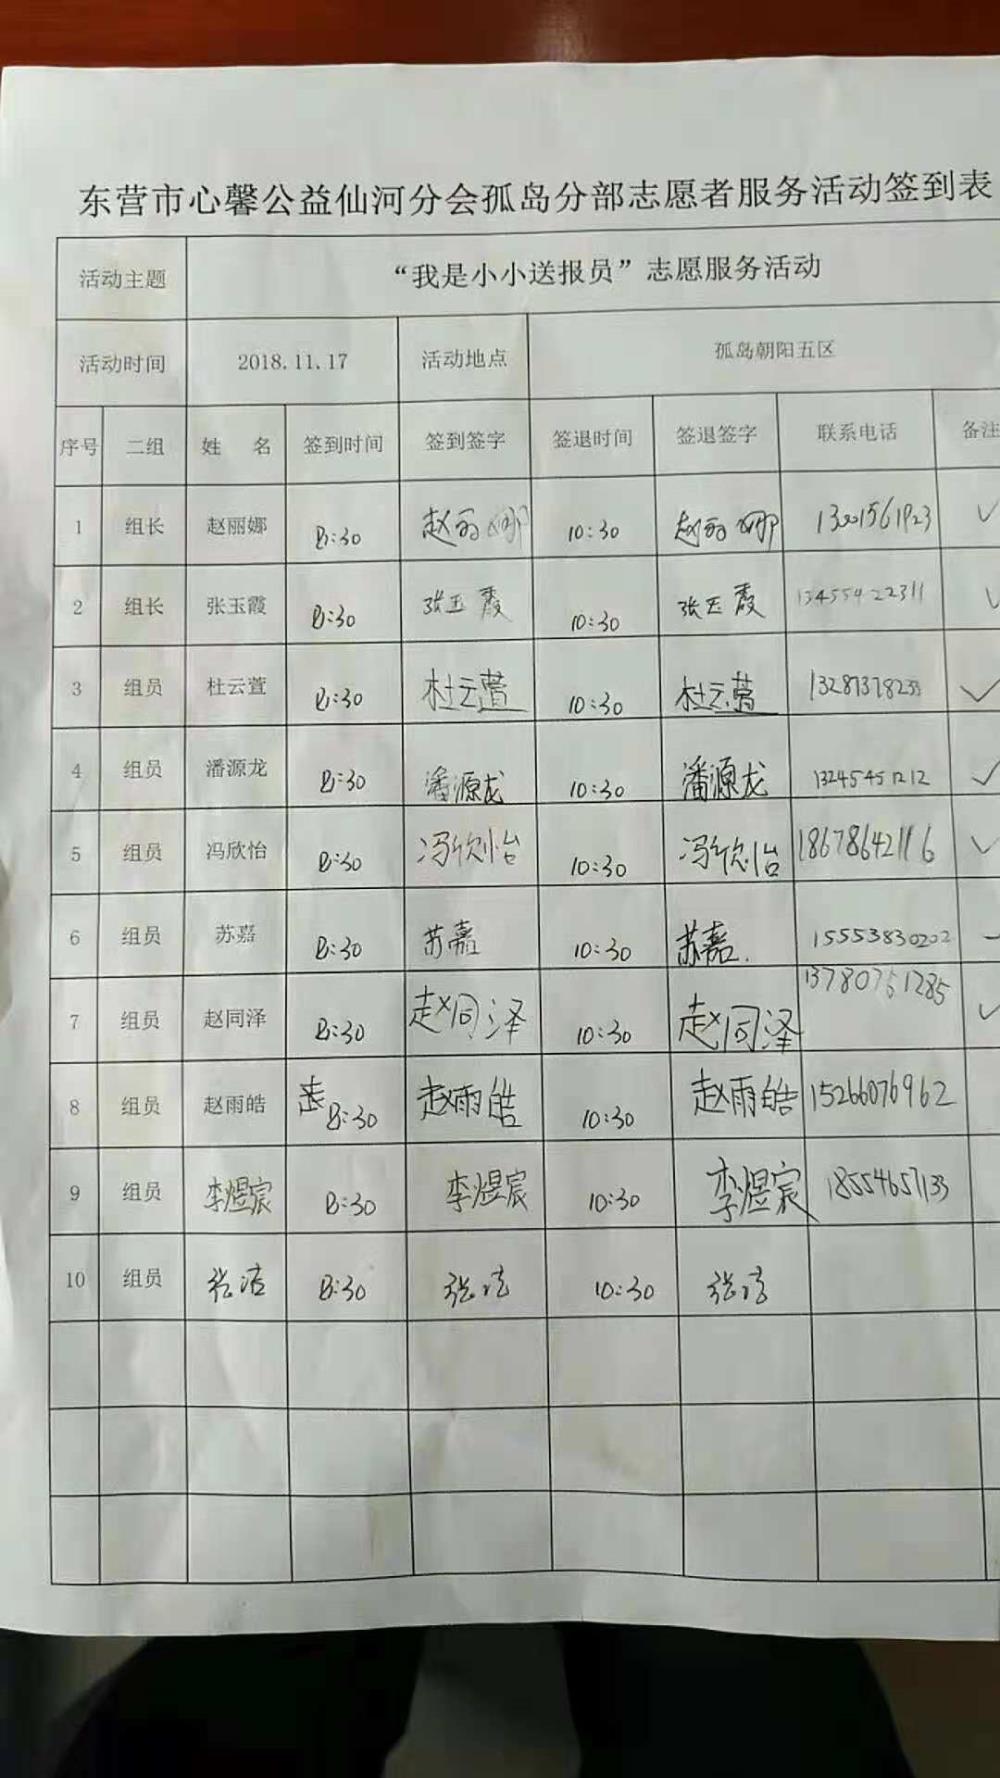 东营市心馨公益仙河分会孤岛分部志愿者服务活动签到表
活动主题 “我是小小送报员”志愿服务活动
活动时间 2018.11.17 活动地点 孤岛朝阳五区
序号 二组 姓 名 签到时间 签到签字 签退时间 签退签字 联系电话 备注
1 组长 赵丽娜 8:30 赵丽娜 10:30 赵丽娜 13001561923 ✓
2 组长 张玉霞 8:30 张玉霞 10:30 张玉霞 13455422311 ✓
3 组员 杜云萱 8:30 杜云萱 10:30 杜云萱 13287378233 ✓
4 组员 潘源龙 8:30 潘源龙 10:30 潘源龙 13245451212 ✓
5 组员 冯欣怡 8:30 冯欣怡 10:30 冯欣怡 18678642116 ✓
6 组员 苏嘉 8:30 苏嘉 10:30 苏嘉. 15553830202
7 组员 赵同泽 8:30 赵同泽 10:30 赵同泽 13780751285 ✓
8 组员 赵雨皓 8:30 赵雨皓 10:30 赵雨皓 15266076962
9 组员 李煜宸 8:30 李煜宸 10:30 李煜宸 18554657133
10 组员 张洁 8:30 张洁 10:30 张洁